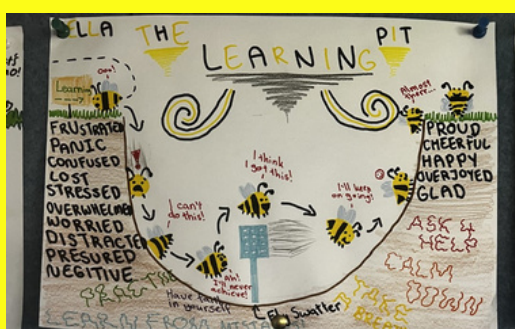 ELLA THE LEARNING PIT
Learning
ooo!
FRUSTRATED
PANIC
CONFUSED
LOST
STRESSED
OVERWHELMED
WORRIED
DISTRACTED
PRESURED
NEGITIVE
!
I can't
do this!
ah!
I'll never
achieve!
I think
I got this!
I'll keep
on going!
Almost
there...
PROUD
CHEERFUL
HAPPY
OVERJOYED
GLAD
ASK 4
HELP
CALM
DOWN
TAKE
A BREAK
Have faith
in yourself
Swatter
LEARN FROM MISTAKES